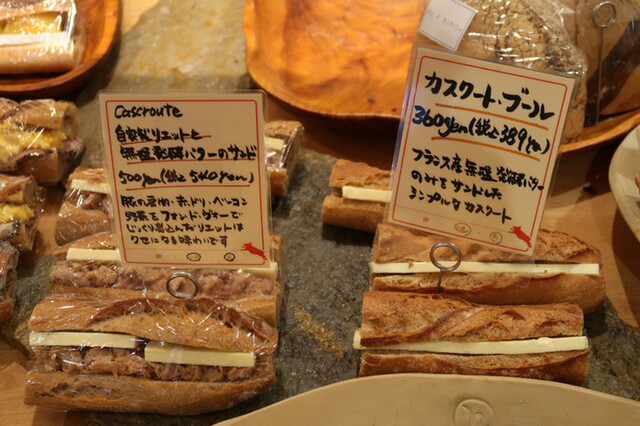 Cascroute
自家製リエットと
無塩発酵バターのサンド
500yen(税込540yen)
豚の肩肉、砂ギモ、ベーコン
野菜をフォンドヴォーで
じっくり煮込んだリエットは
クセになる味わいです
カスクート・ブール
360yen(税込389yen)
フランス産無塩発酵バター
のみをサンドした
シンプルなカスクート